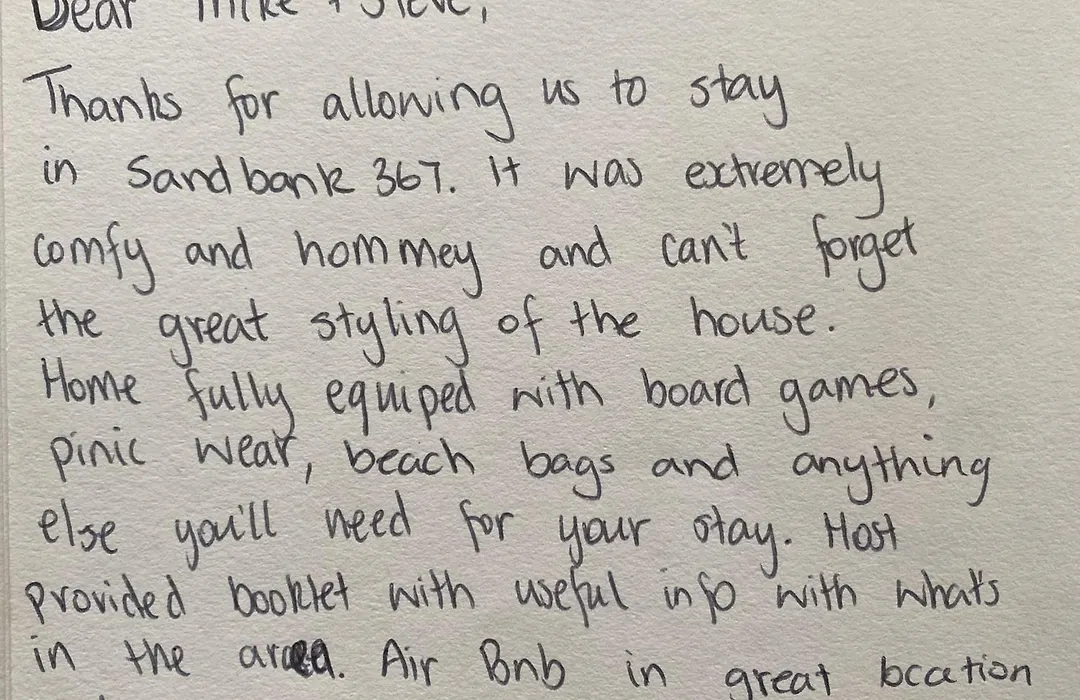 Dear Mike + Steve,
Thanks for allowing us to stay
in Sandbank 367. It was extremely
comfy and hommey and can't forget
the great styling of the house.
Home fully equiped with board games,
pinic wear, beach bags and anything
else you'll need for your stay. Host
provided booklet with useful info with what's
in the area. Air Bnb in great location